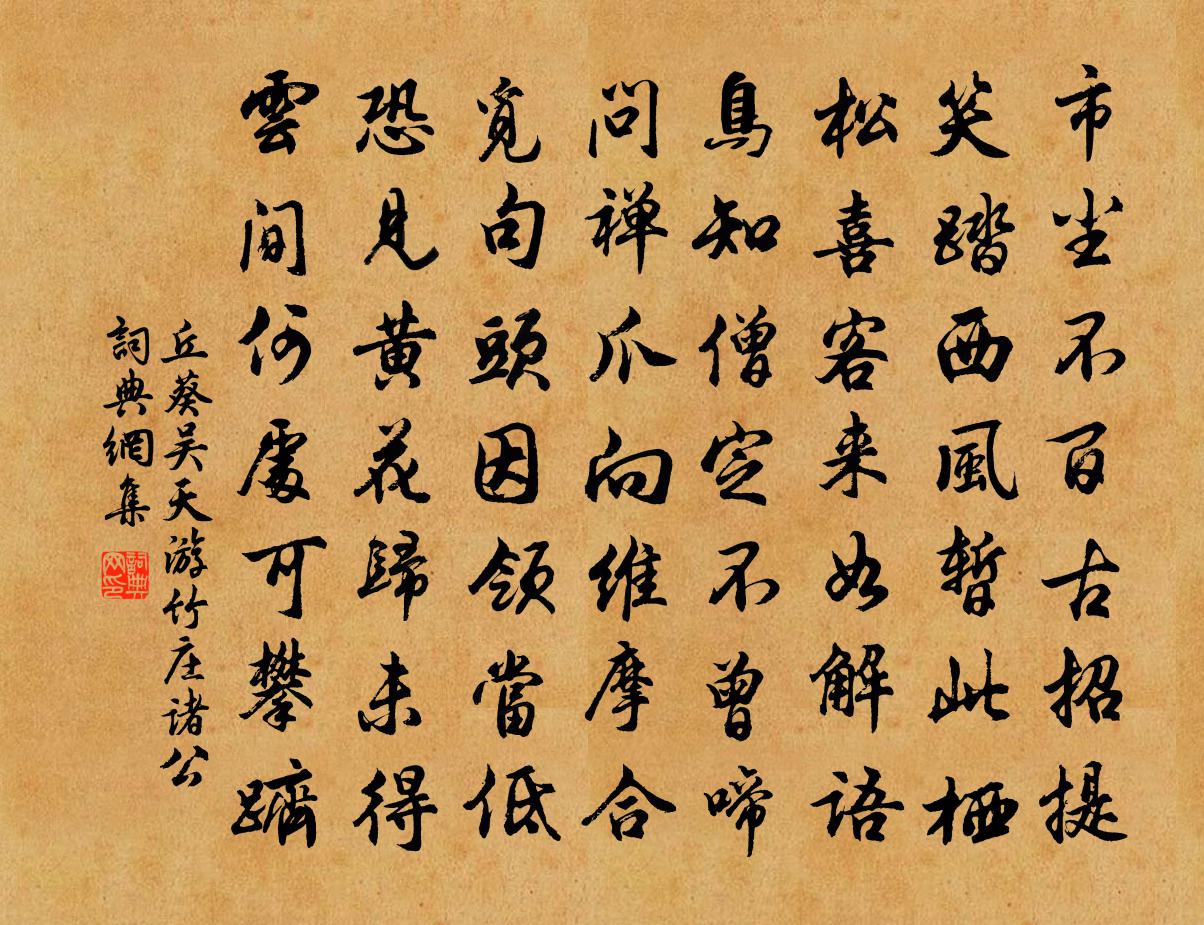 市尘不百古招提
笑踏西風暫此栖
松喜客来如解语
鳥知僧定不曾啼
问禅爪向维摩合
覓句頭因領當低
恐見黄花歸未得
雲间何處可攀躋
丘葵吴天游竹庄诸公
詞典網集
詞典网印